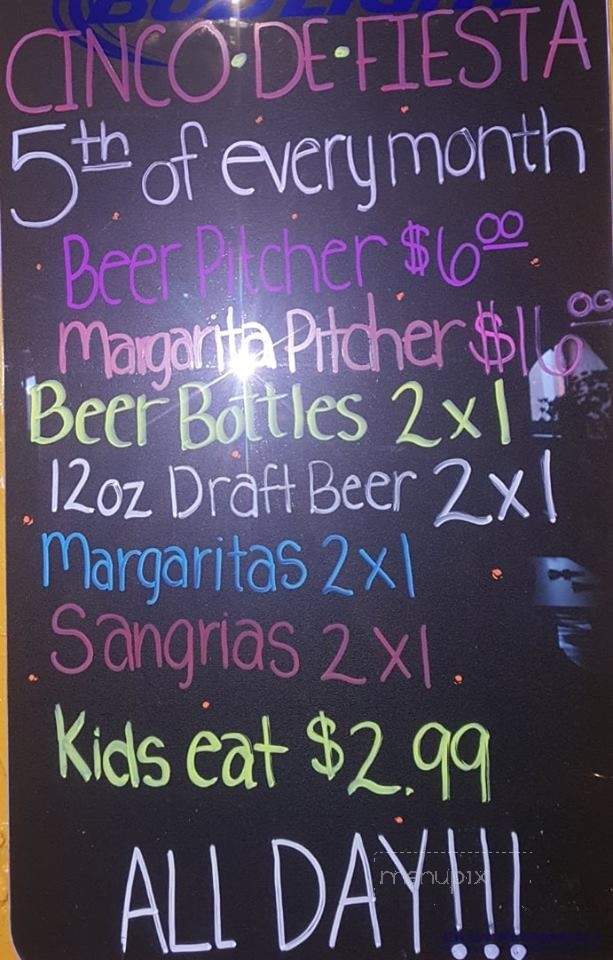 BUD LIGHT
CINCO·DE·FIESTA
5th of every month
Beer Pitcher $6.00
Margarita Pitcher $16.00
Beer Bottles 2x1
12oz Draft Beer 2x1
Margaritas 2x1
Sangrias 2x1
Kids eat $2.99
ALL DAY!!!
menupix